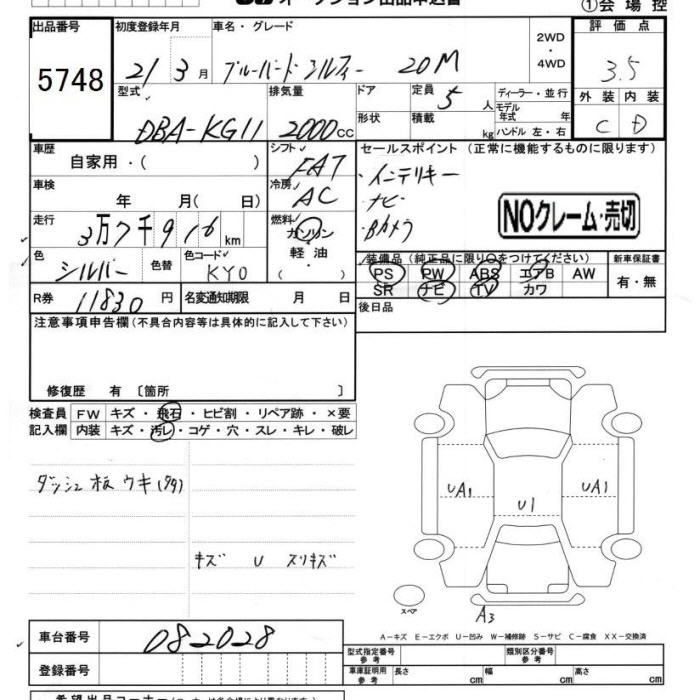 オークション出品申込書
①会場控
出品番号 初度登録年月 車名・グレード 2WD ・ 4WD 評価点
5748 21年3月 ブルーバード シルフィー 20M 3.5
型式 排気量 ドア 定員 5人 ディーラー・並行 外装 内装
DBA-KG11 2000cc 形状 積載 kg モデル年式 年 ハンドル 左・右 C D
車歴 自家用・( ) シフト FAT セールスポイント (正常に機能するものに限ります)
車検 年 月( 日) 冷房 AC ・インテリキー
・ナビ
・Bカメラ
NOクレーム・売切
走行 3万7千916km 燃料 ガソリン・軽油・( )
色 シルバー 色替 色コード KY0 装備品 (純正品に限り○をつけてください) 新車保証書
PS PW ABS エアB AW 有・無
R券 11830円 名変通知期限 月 日 SR ナビ TV カワ
注意事項申告欄(不具合内容等は具体的に記入して下さい) 後日品
修復歴 有 〔箇所 〕
検査員 FW キズ・飛石・ヒビ割・リペア跡・×要
記入欄 内装 キズ・汚レ・コゲ・穴・スレ・キレ・破レ
ダッシュ板 ウキ
UA1 U1 UA1
キズ U スリキズ
スペア A3
A-キズ E-エクボ U-凹み W-補修跡 S-サビ C-腐食 XX-交換済
車台番号 082028 型式指定番号 参考 類別区分番号 参考
登録番号 車庫証明用 参考 長さ cm 幅 cm 高さ cm
希望出品コーナー